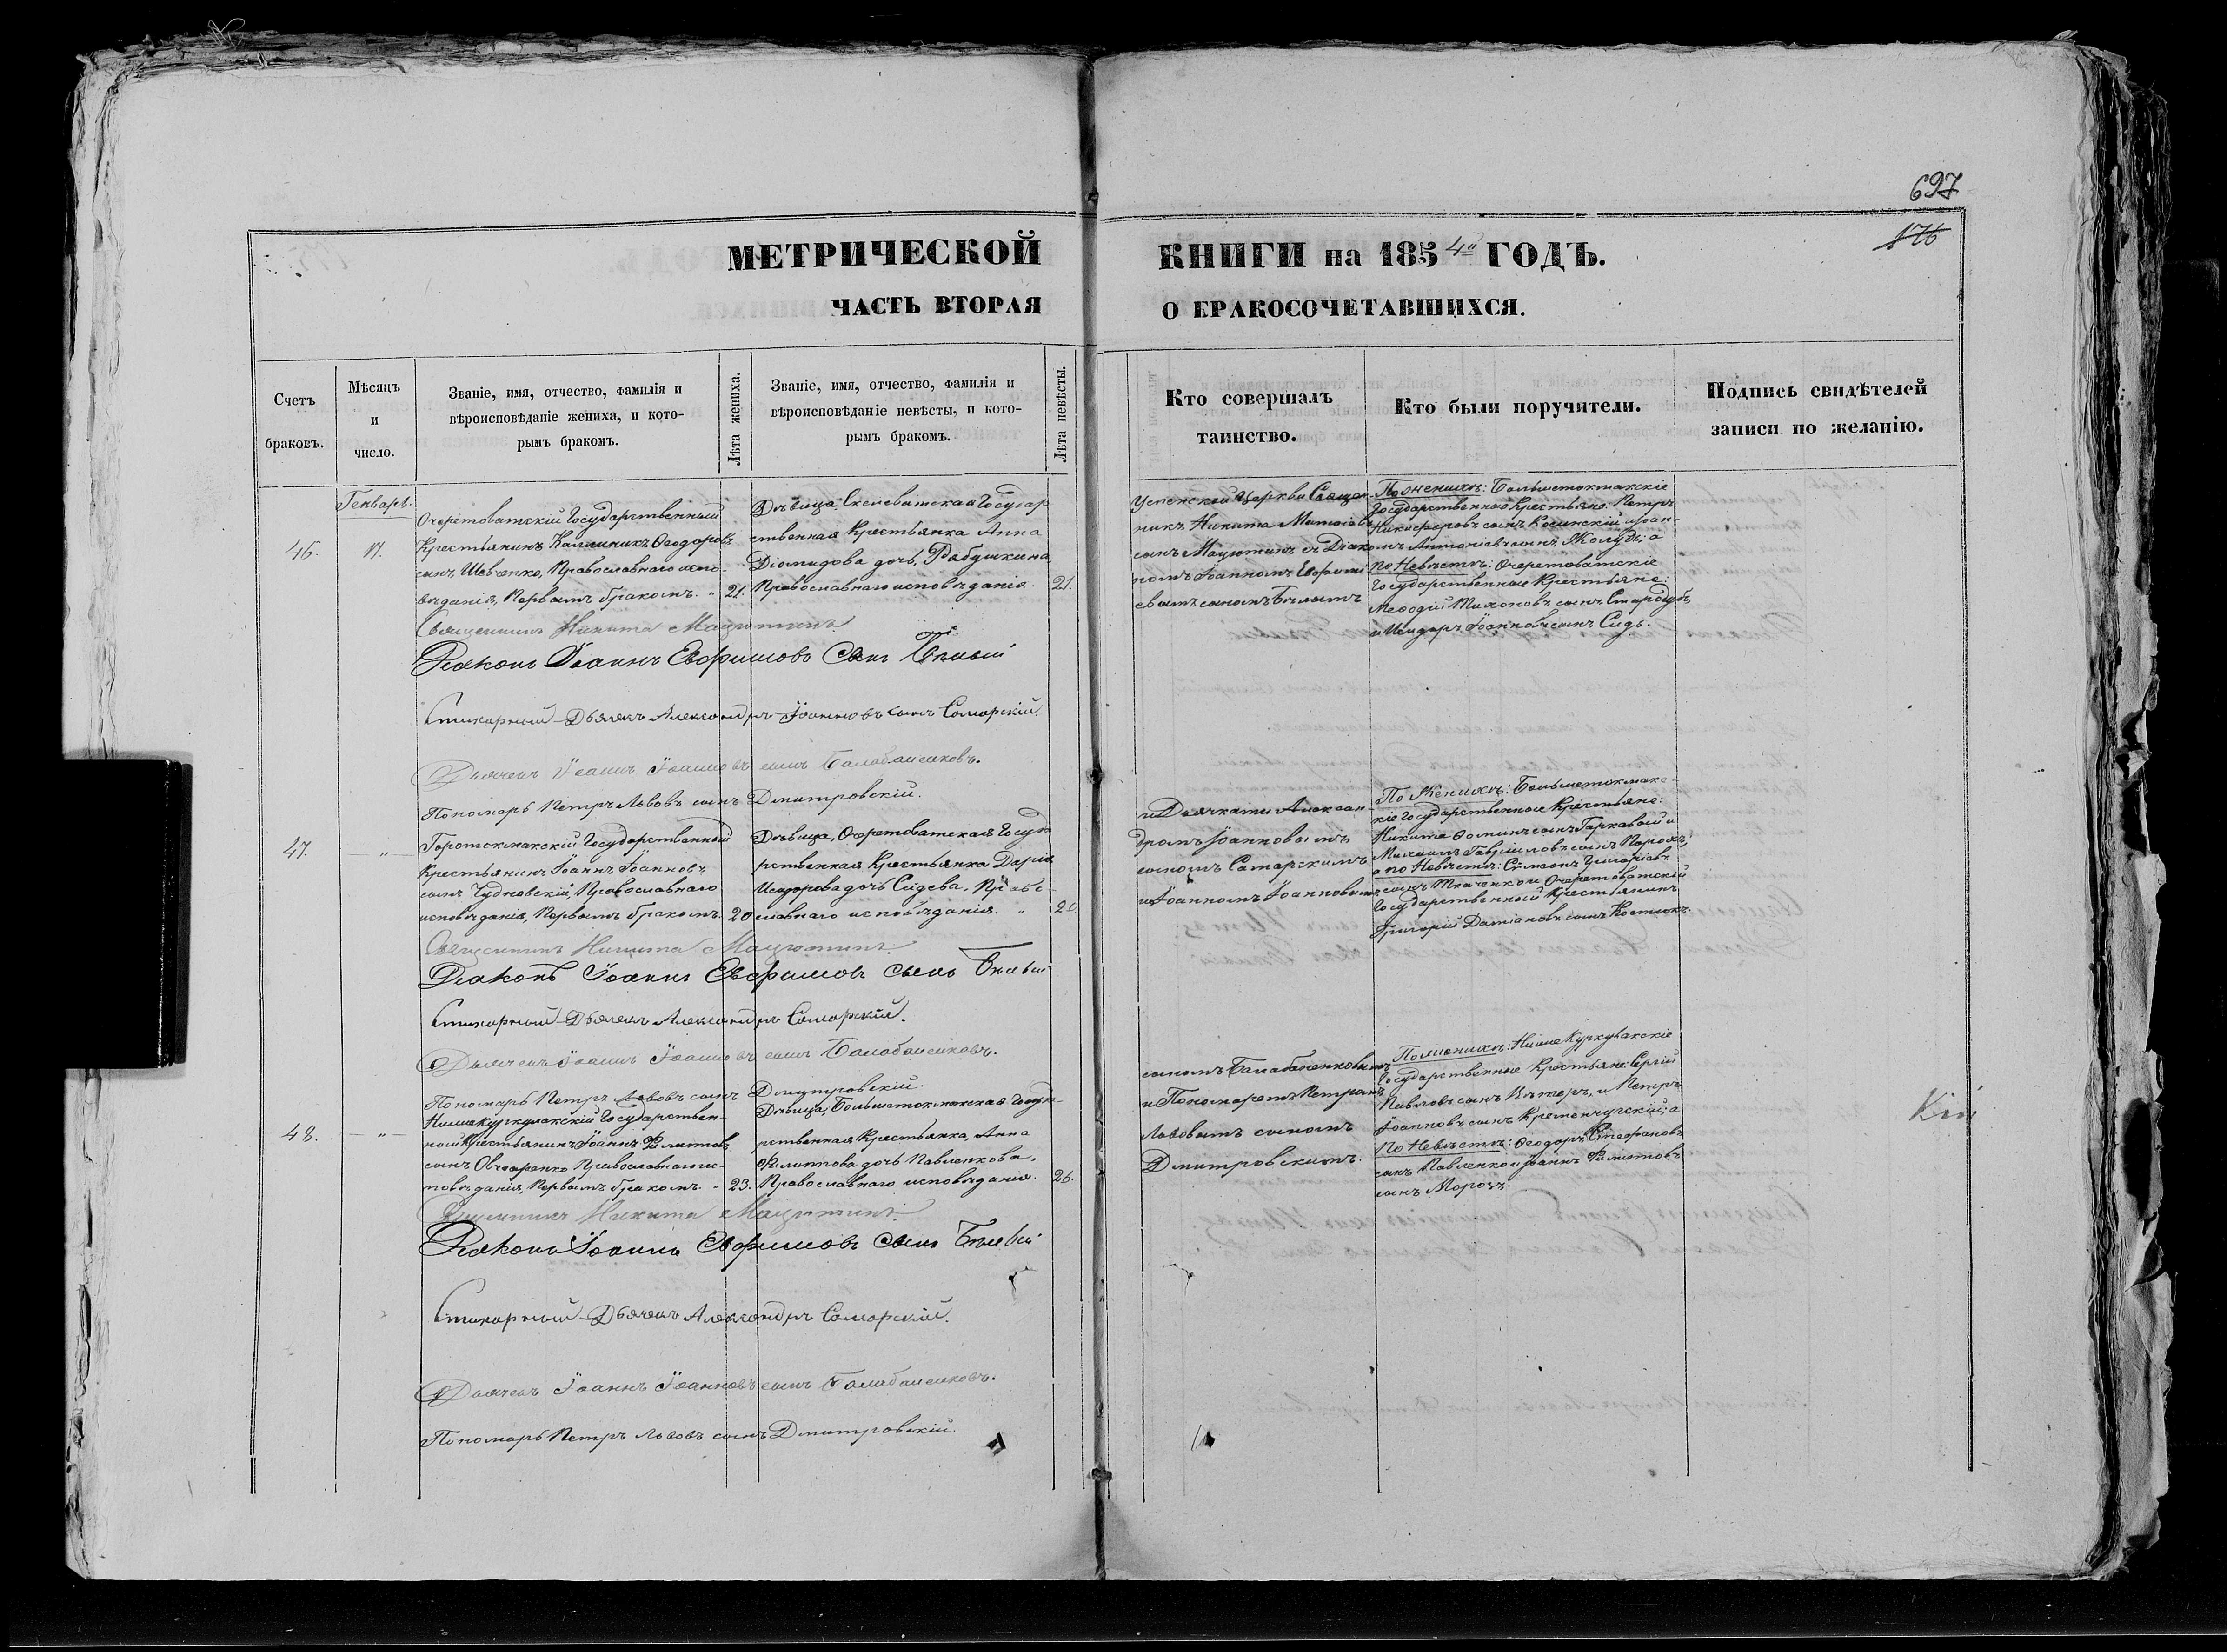 697
176
МЕТРИЧЕСКОЙ КНИГИ на 1854й ГОДЪ.
ЧАСТЬ ВТОРАЯ О БРАКОСОЧЕТАВШИХСЯ.
Счетъ браковъ.
Мѣсяцъ и число.
Званіе, имя, отчество, фамилія и
вѣроисповѣданіе жениха, и кото-
рымъ бракомъ.
Лѣта жениха.
Званіе, имя, отчество, фамилія и
вѣроисповѣданіе невѣсты, и кото-
рымъ бракомъ.
Лѣта невѣсты.
Кто совершалъ
таинство.
Кто были поручители.
Подпись свидѣтелей
записи по желанію.
Генварь.
46.
17.
Очеретоватскій Государственный
Крестьянинъ Каллиникъ Ѳеодоровъ
сынъ Шевченко, Православнаго испо-
вѣданія, Первымъ бракомъ.
21.
Дѣвица, Скелеватская Государ
ственная Крестьянка Анна
Діомидова дочь, Рябушкина
Православнаго исповѣданія.
21.
Успенской Церкви Священ-
никъ Никита
сынъ Мацютинъ съ Діако-
номъ Іоанномъ Евфимі-
евымъ сыномъ Бѣлымъ
По женихѣ: Большетокмакскіе
Государственные Крестьяне: Петръ
Никифоровъ сынъ Косинскій и Іоан-
нъ Антоніевъ сынъ Жолудь; а
по Невѣстѣ: Очеретоватскіе
Государственные Крестьяне:
Меѳодій Тихоновъ сынъ Стародубъ,
и Исидоръ Іоанновъ сынъ Сидь.
Священникъ Никита Мацютинъ
Діаконъ Іоаннъ Евфимовъ сынъ Бѣлый
Стихарный Дьячекъ Александръ Іоанновъ сынъ Самарскій.
Дьячекъ Іоаннъ Іоанновъ сынъ Балабаненковъ.
Пономарь Петръ Львовъ сынъ Дмитровскій.
47.
"
Государственный
Крестьянинъ Іоаннъ Іоанновъ
сынъ Чудновскій, Православнаго
исповѣданія, Первымъ бракомъ.
20
Дѣвица, Очеретоватская Госуда
рственная Крестьянка Дарія
Исидорова дочь Сидева, Право-
славнаго исповѣданія. "
20.
и Дьячками Алексан-
дромъ Іоанновымъ
сыномъ Самарскимъ
и Іоанномъ Іоанновымъ
По Женихѣ: Большетокмакс-
кіе Государственные Крестьяне:
Никита Ѳоминъ сынъ Гаркавый и
Михаилъ Гавріиловъ сынъ Порохъ,
а по Невѣстѣ: Сѵмеонъ
сынъ Ткаченко и Очеретоватскій
Государственный Крестьянинъ
Григорій Даміановъ сынъ Костюкъ.
Священникъ Никита Мацютинъ
Діаконъ Іоаннъ Евфимовъ сынъ Бѣлый
Стихарный Дьячекъ Александръ Самарскій.
Дьячекъ Іоаннъ Іоанновъ сынъ Балабаненковъ.
Пономарь Петръ Львовъ сынъ Дмитровскій.
48.
"
Нижнекуркулакскій Государствен-
ный Крестьянинъ Іоаннъ Филиповъ
сынъ Овчаренко Православнаго ис-
повѣданія, Первымъ бракомъ.
23.
Дѣвица, Большетокмакская Госуда-
рственная Крестьянка, Анна
Филиппова дочь Павленкова,
Православнаго исповѣданія.
26.
сыномъ Балабаненковымъ
и Пономаремъ Петромъ
Львовымъ сыномъ
Дмитровскимъ.
По женихѣ: Нижнекуркулакскіе
Государственные Крестьяне Сергій
Павловъ сынъ и Петръ
Іоанновъ сынъ Кременчугскій; а
По Невѣстѣ: Ѳеодоръ Стефановъ
сынъ Павленко и Іоаннъ Филиповъ
сынъ Морозъ.
Священникъ Никита Мацютинъ
Діаконъ Іоаннъ Евфимовъ сынъ Бѣлый
Стихарный Дьячекъ Александръ Самарскій.
Дьячекъ Іоаннъ Іоанновъ сынъ Балабаненковъ.
Пономарь Петръ Львовъ сынъ Дмитровскій.